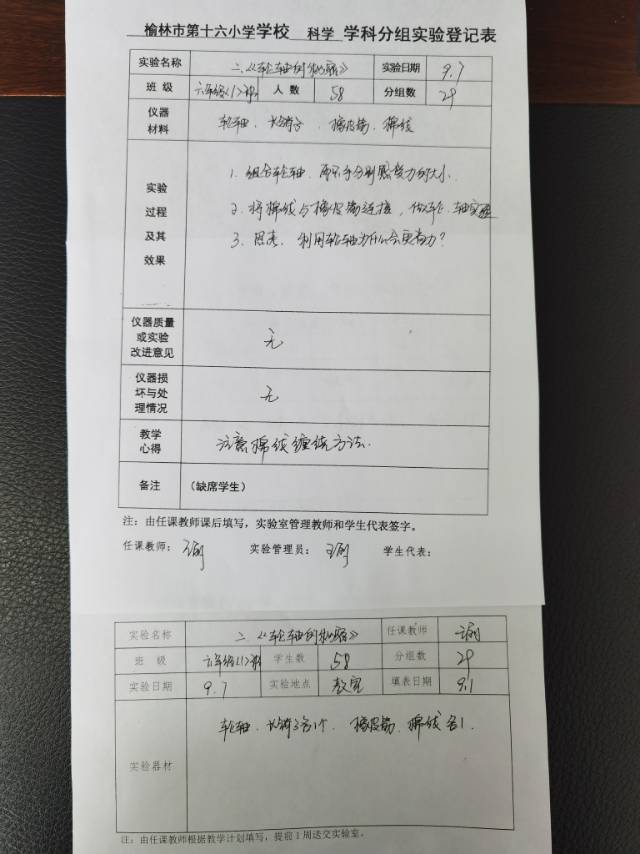 榆林市第十六小学学校 科学 学科分组实验登记表
实验名称 二、《轮轴的秘密》 实验日期 9.7
班级 六年级(1)班 人数 58 分组数 29
仪器材料 轮轴、长椅子、橡皮筋、棉线
实验过程及其效果
1. 组合轮轴、两手分别感受力的大小.
2. 将棉线与橡皮筋连接,做轮、轴实验
3. 思考,利用轮轴为什么会更省力?
仪器质量或实验改进意见 无
仪器损坏与处理情况 无
教学心得 注意棉线缠绕方法.
备注 (缺席学生)
注:由任课教师课后填写,实验室管理教师和学生代表签字。
任课教师: 实验管理员: 学生代表:
实验名称 二、《轮轴的秘密》 任课教师
班级 六年级(1)班 学生数 58 分组数 29
实验日期 9.7 实验地点 教室 填表日期 9.1
实验器材 轮轴、长椅子各1个、橡皮筋、棉线各1.
注:由任课教师根据教学计划填写,提前1周送交实验室。